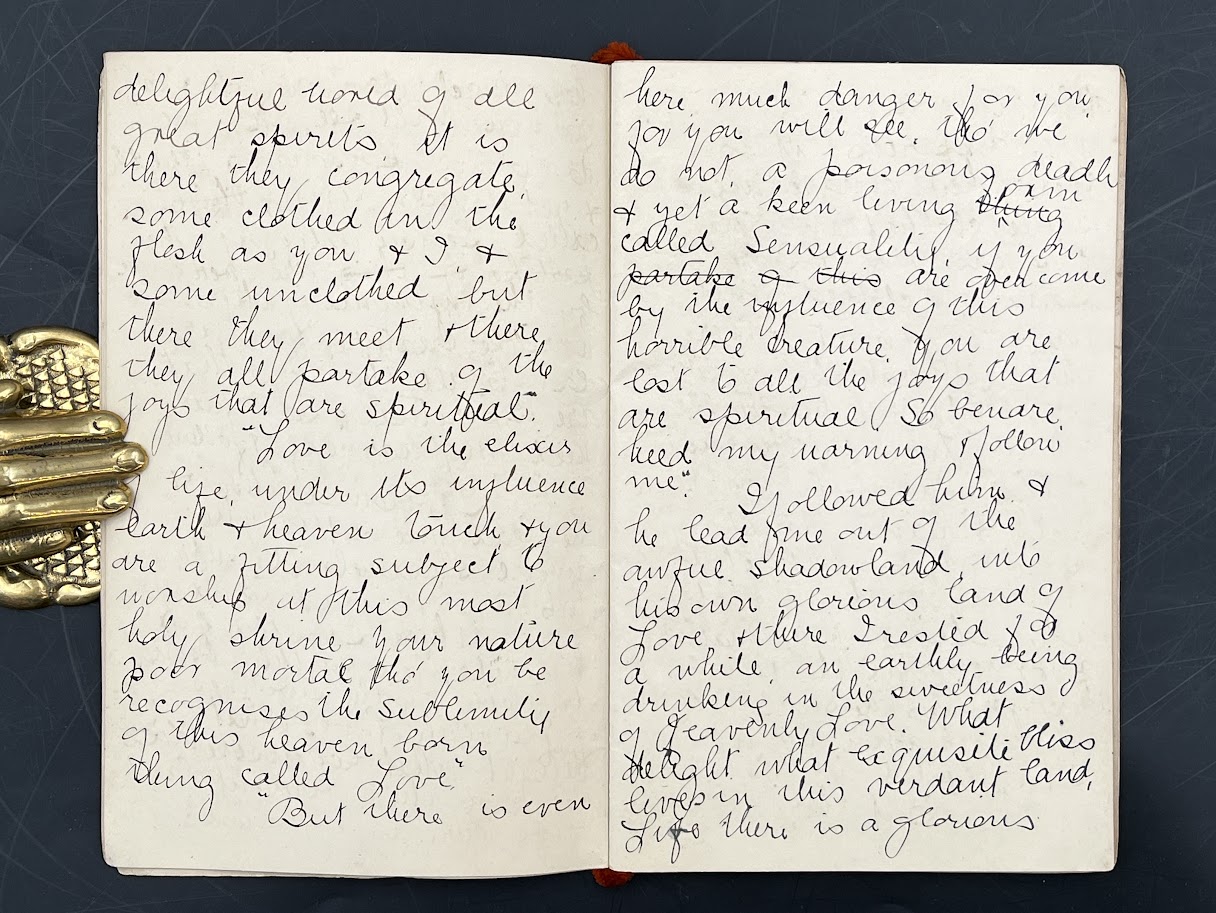 delightful world of all
great spirits It is
there they congregate,
some clothed in the
flesh as you & I, &
some unclothed but
there they meet & there
they all partake of the
joys that are spiritual".
"Love is the elixir
life, under its influence
earth & heaven touch & you
are a fitting subject to
worship at this most
holy shrine your nature
poor mortal tho' you be
recognises the sublimity
of this heaven born
thing called Love"
"But there is even
here much danger for you
for you will see, tho' we
do not, a poisonous deadly
& yet a keen living ~~thing~~ form
called Sensuality, if you
~~partake of this~~ are overcome
by the influence of this
horrible creature, you are
lost to all the joys that
are spiritual So beware
heed my warning & follow
me".
I followed him &
he lead me out of the
awful shadowland into
his own glorious land of
Love & there I rested for
a while, an earthly being
drinking in the sweetness
of Heavenly Love. What
delight what exquisite bliss
lives in this verdant land,
Life there is a glorious